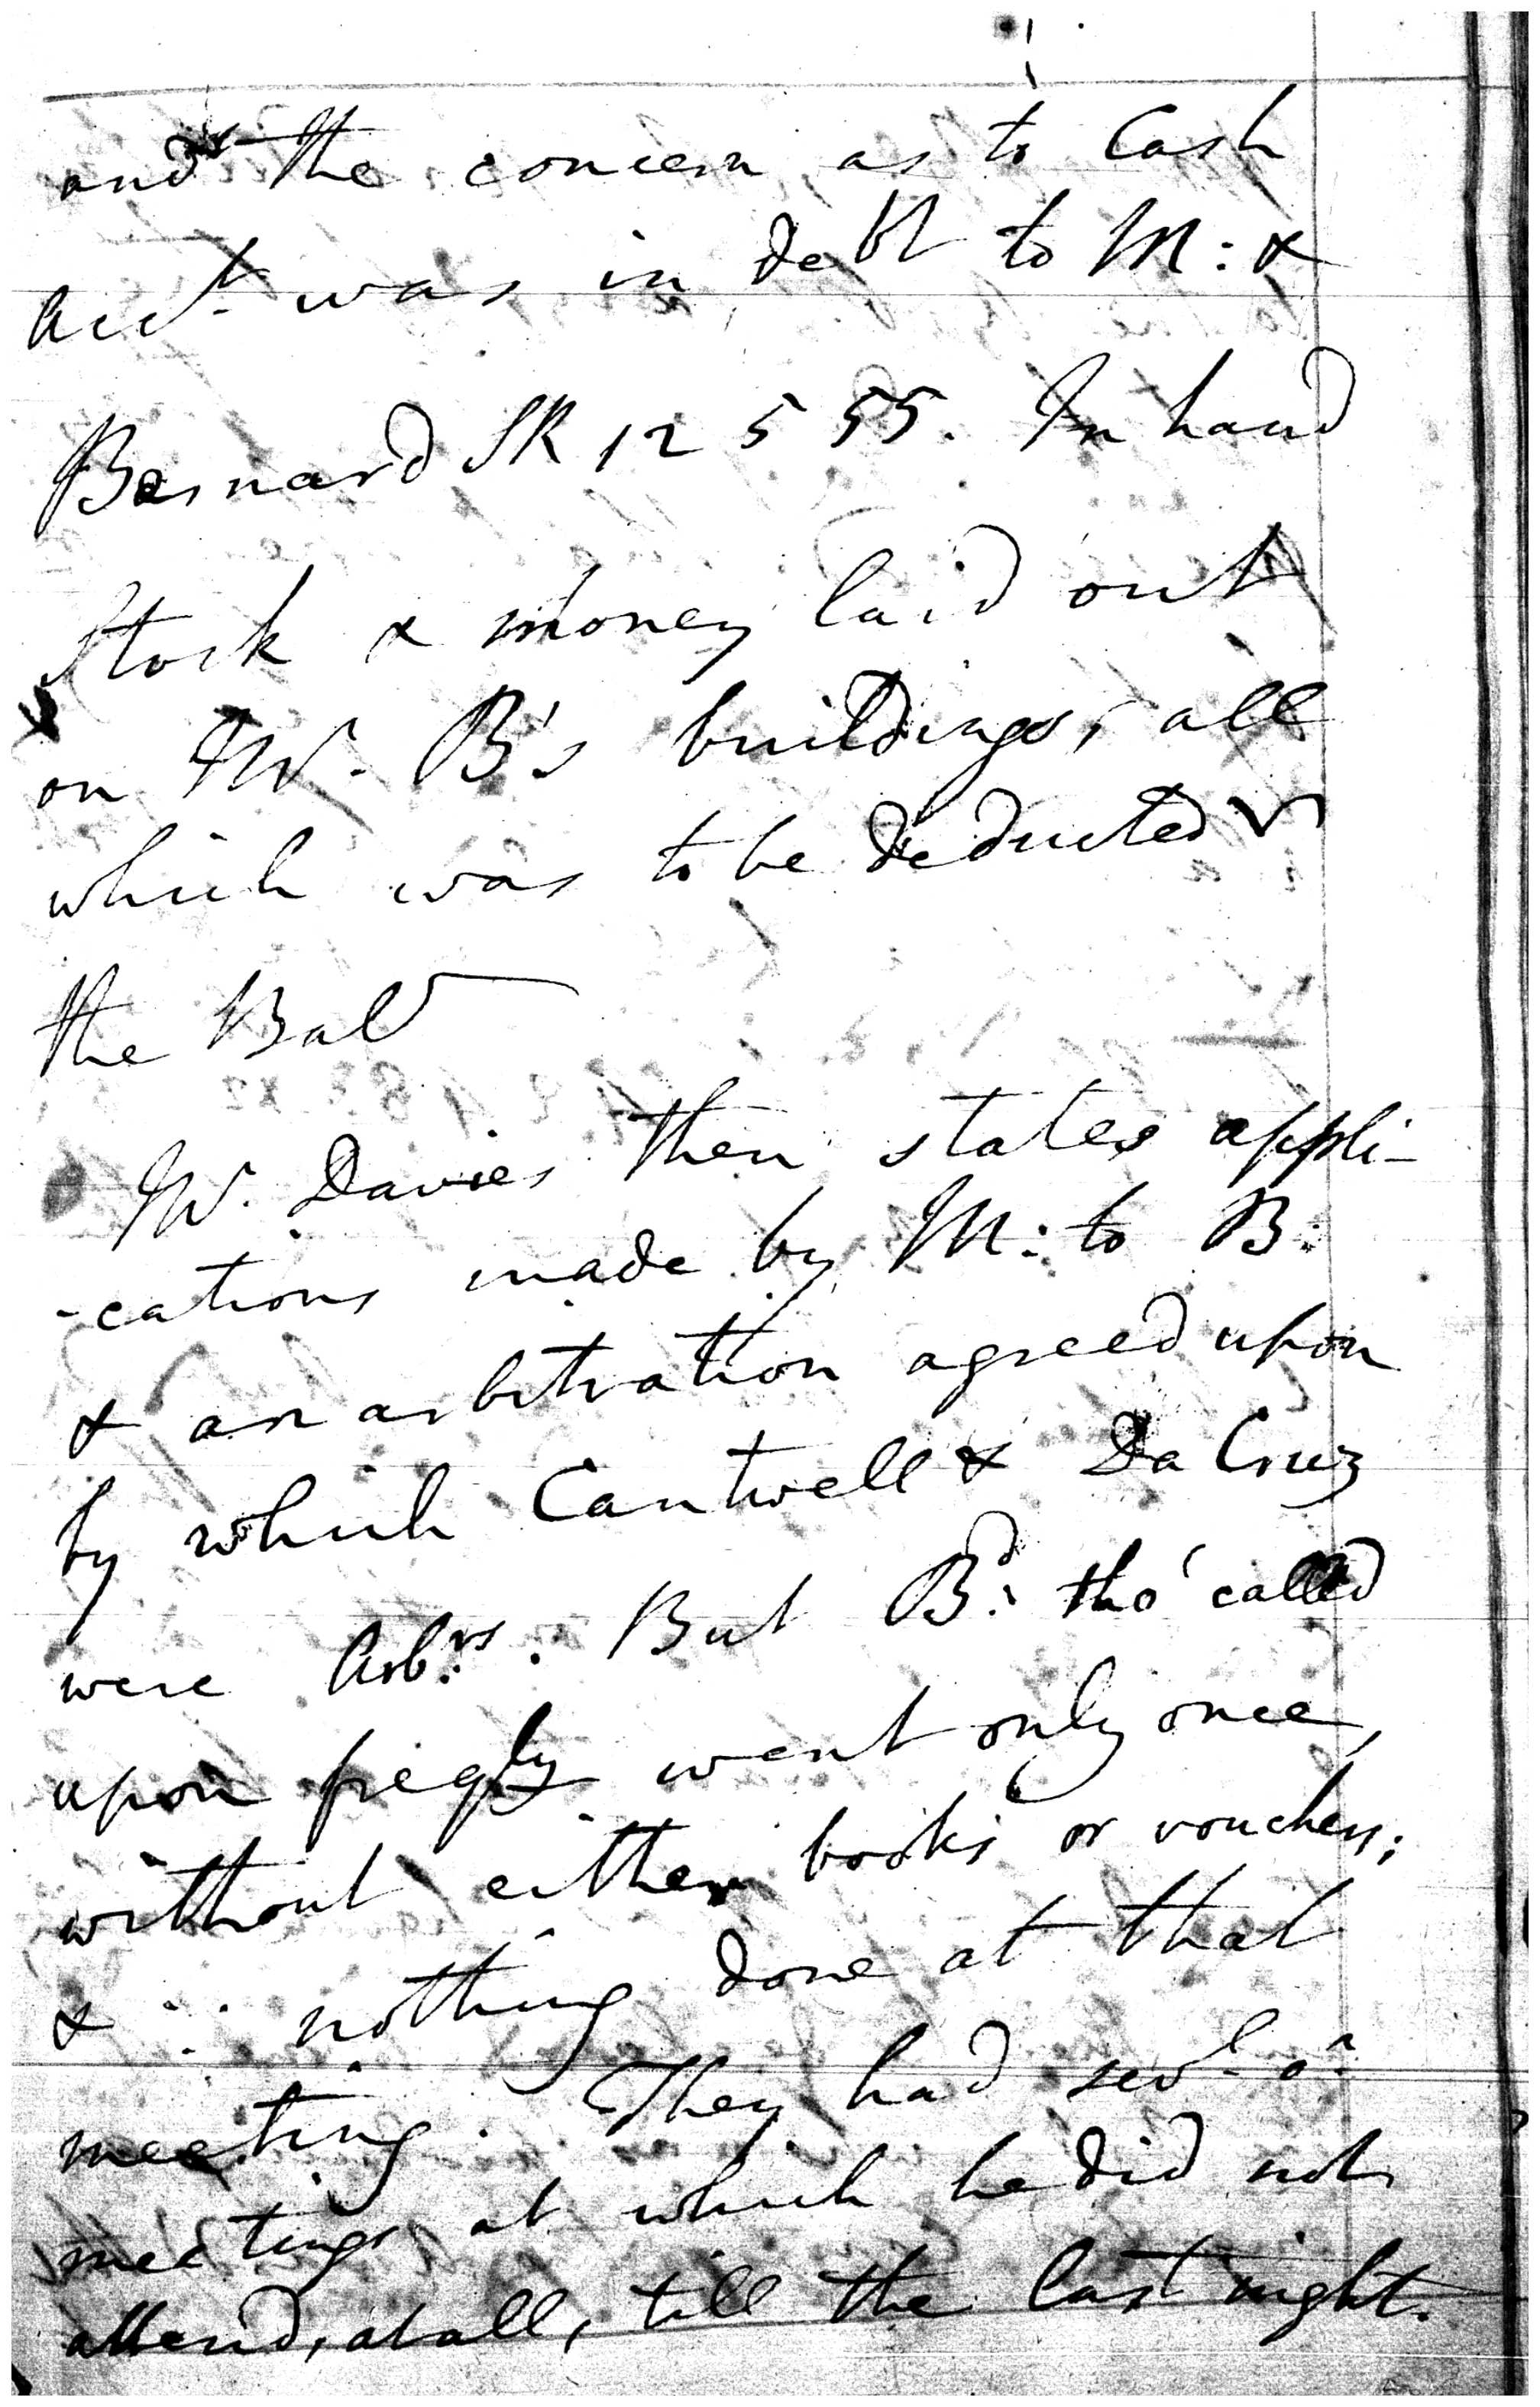 and the concern as to Cash
Acct. was in debt to M: &
Barnard SR 12 5 55. In hand
Stock & money laid out
on Mr. B's buildings, all
which was to be deducted
the Bal
Mr. Davies then states appli-
-cations made by M: to B:
& an arbitration agreed upon
by which Cantwell & Da Cruz
were Arb:rs. But Bd: tho' called
upon freqly went only once,
without either books or vouchers;
& nothing done at that
meeting. They had sevl. or.
meetings at which he did not
attend, at all, till the last night.